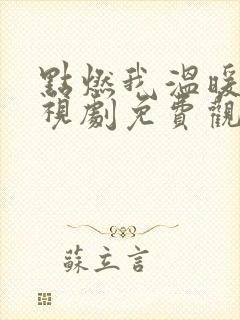 點燃我溫暖
視劇免費觀
蘇立言